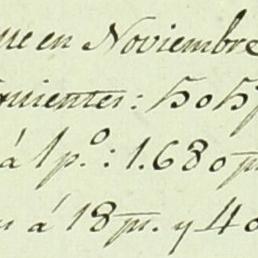 que en Noviembre
quientes: 505
á 1 p.º: 1.680 p
á 18 pr. y 40